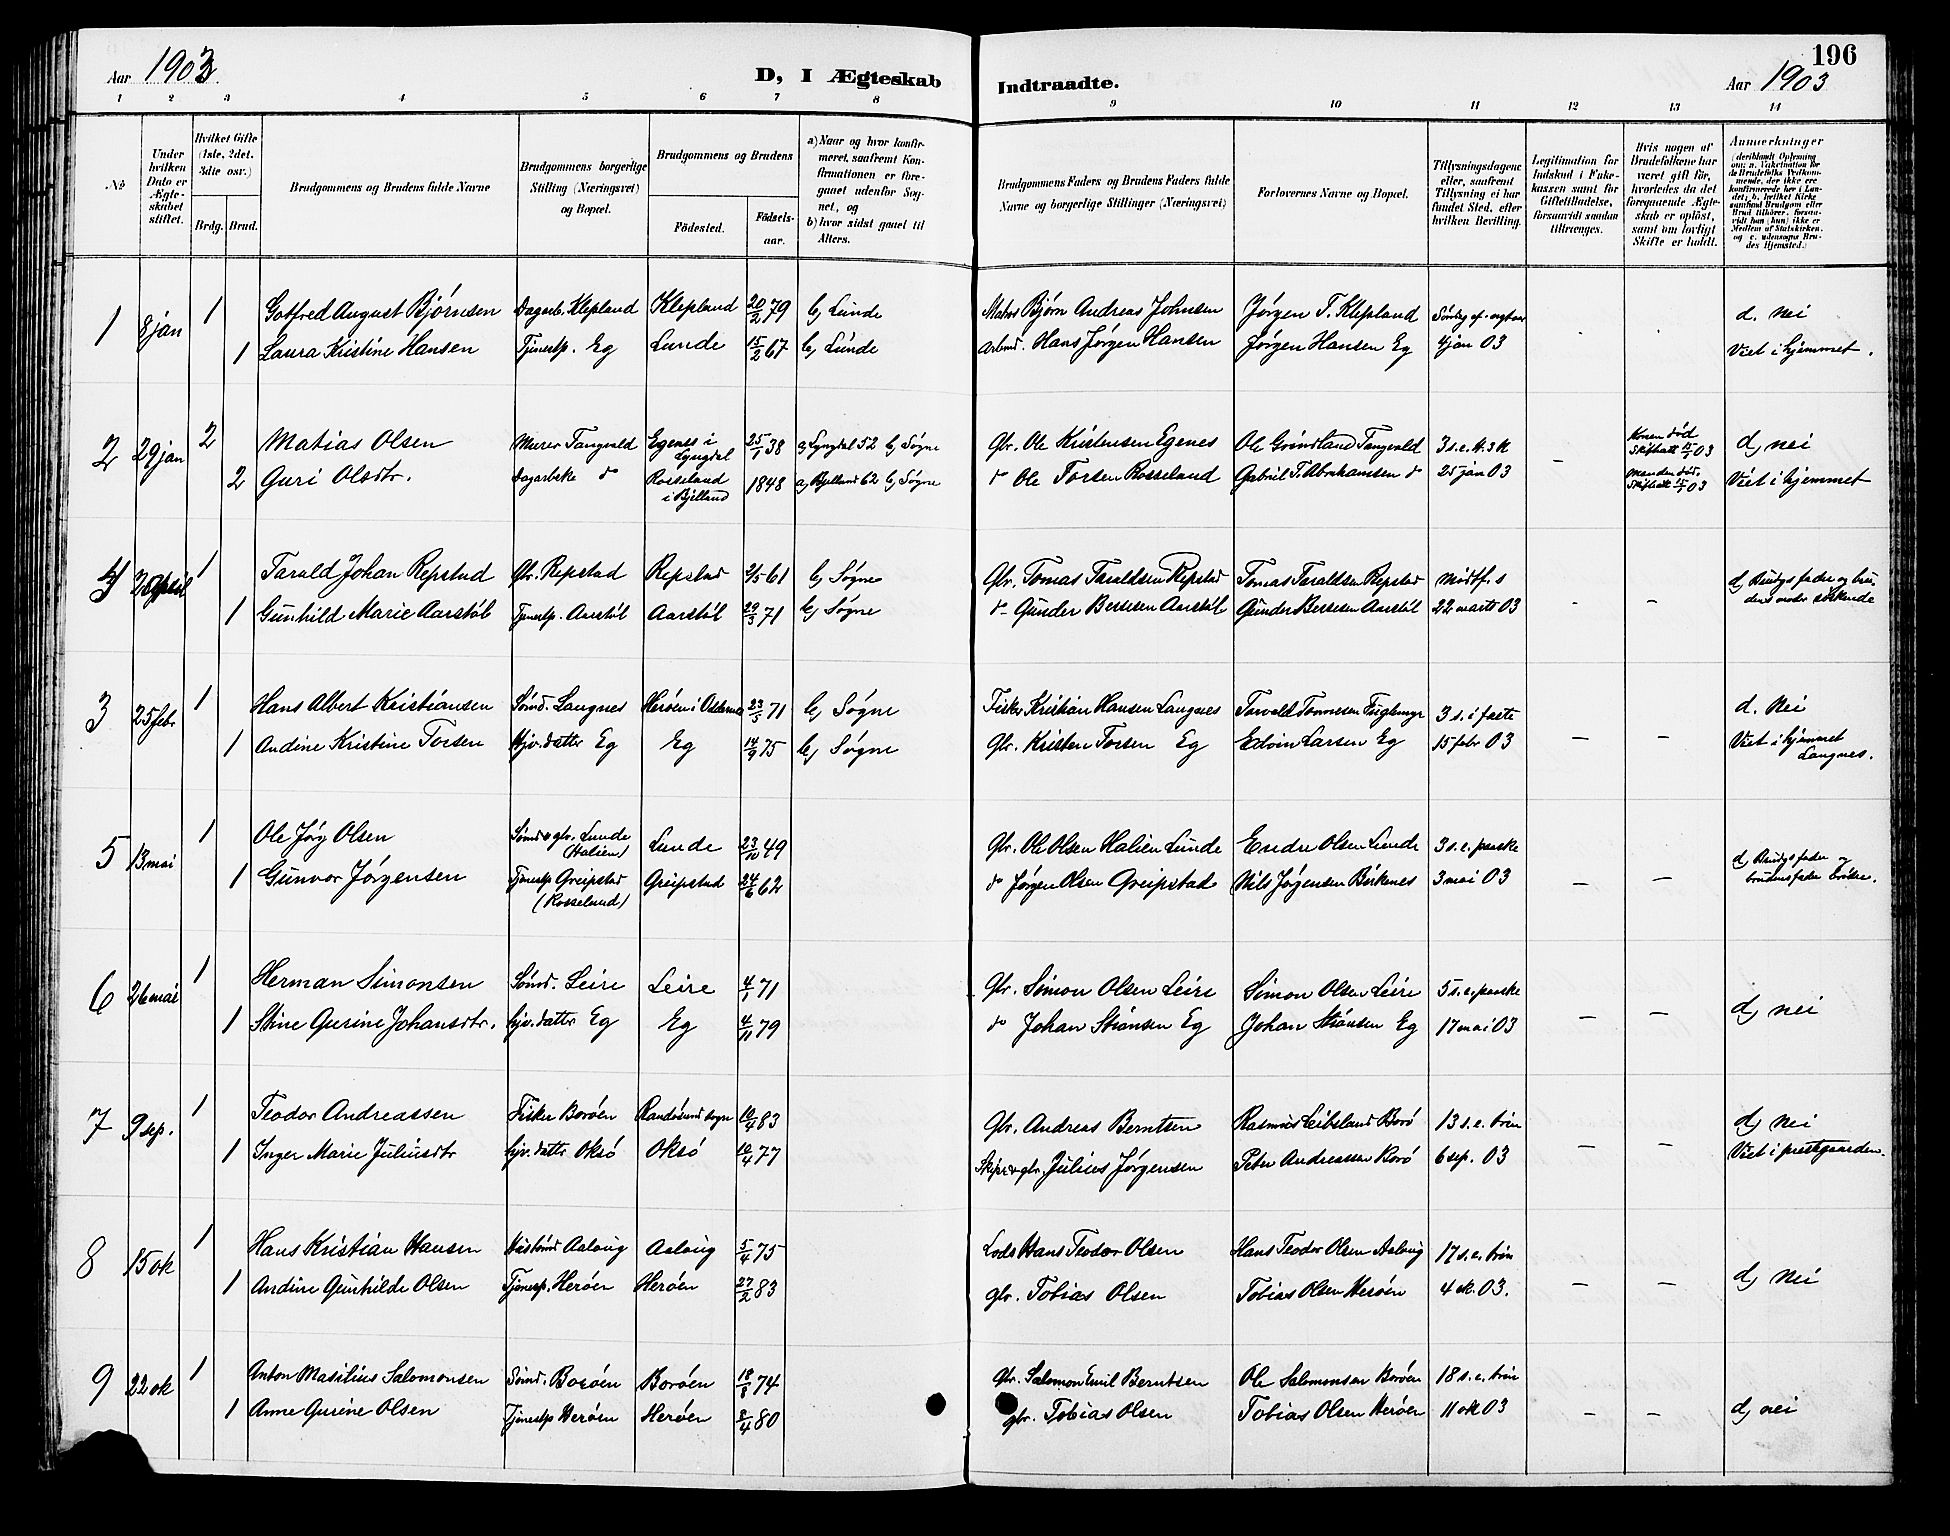 196
Aar 1903
D, I Ægteskab Indtraadte.
Aar 1903
1 2 3 4 5 6 7 8 9 10 11 12 13 14
No
Under hvilken Dato er Ægteskabet stiftet.
Hvilket Gifte (1ste, 2det, 3die osv.)
Brdg. Brud.
Brudgommens og Brudens fulde Navne
Brudgommens borgerlige Stilling (Næringsvei) og Bopæl.
Brudgommens og Brudens
Födested. Födsels-aar.
a) Naar og hvor konfirmeret, saafremt Konfirmationen er foregaaet udenfor Sognet, og
b) hvor sidst gaaet til Alters.
Brudgommens Faders og Brudens Faders fulde Navne og borgerlige Stillinger (Næringsvei)
Forlovernes Navne og Bopæl.
Tillysningsdagene eller, saafremt Tillysning ei har fundet Sted, efter hvilken Bevilling.
Legitimation for Indskud i Enkekassen samt for Giftetilladelse, forsaavidt saadan tiltrænges.
Hvis nogen af Brudefolkene har været gift för, hvorledes da det foregaaende Ægteskab er oplöst, samt om lovligt Skifte er holdt.
Anmærkninger
1 8 jan 1 Gotfred August Bjørnsen Dagarb. Klepland Klepland 20/2 79 b) Lunde Matros Bjørn Andreas Johnsen Jørgen T. Klepland Søndag ef. nytaar d. nei
1 Laura Kristine Hansen Tjenestp. Eg Lunde 15/2 67 b) Lunde Arbmd. Hans Jørgen Hansen Jørgen Hansen Eg 4 jan 03 Viet i hjemmet.
2 29 jan 2 Matias Olsen Murer Tangvald Egenes i Lyngdal 25/1 38 a) Lyngdal 52 b) Søgne Gbr. Ole Kristensen Egenes Ole Grundland Tangvald 3 s.e. H.3K Konen død Skifteatt 15/1 03 d) nei
2 Guri Olsdtr. Dagarbske do Rosseland i Bjelland 1848 a) Bjelland 62 b) Søgne do Ole Torsen Rosseland Gabriel T. Abrahamsen do 25 jan 03 – Manden død, Skifteatt 15/1 03 Viet i hjemmet
4 2 April 1 Tarald Johan Repstad Gbr. Repstad Repstad 2/5 61 b) Søgne Gbr. Tomas Taraldsen Repstad Tomas Taraldsen Repstad Midtf. s d) Brudgs fader og bru-
1 Gunhild Marie Aarstøl Tjenestp. Aarstøl Aarstøl 29/3 71 b) Søgne do Gunder Bersesen Aarstøl Gunder Bersesen Aarstøl 22 marts 03 – – dens moder søskende
3 25 febr 1 Hans Albert Kristiansen Sømd. Langnes Herøen i Oddernes 23/5 71 b) Søgne Fisker Kristian Hansen Langnes Tarvald Tønnesen Fuglemyr 3 s. i faste d. nei
1 Andine Kristine Torsen Hjv. datter Eg Eg 14/9 75 b) Søgne Gbr. Kristen Torsen Eg Edvin Larsen Eg 15 febr 03 – – Viet i hjemmet
Langnes.
5 13 mai 1 Ole Jørg Olsen Sømd & gbr. Lunde (Halien) Lunde 23/10 49 Gbr. Ole Olsen Halien Lunde Endre Olsen Lunde 3 s.e. paaske d) Brudgs fader og
1 Gunvor Jørgensen Tjenestp Greipstad (Rosseland) Greipstad 24/6 62 do Jørgen Olsen Greipstad Nils Jørgensen Birkenes 3 mai 03 – – brudens fader brødre.
6 26 mai 1 Herman Simonsen Sømd. Leire Leire 4/1 71 Gbr. Simon Olsen Leire Simon Olsen Leire 5 s.e. paaske
1 Stine Gurine Johansdtr. hjv. datter Eg Eg 4/11 79 do Johan Stiansen Eg Johan Stiansen Eg 17 mai 03 – – d) nei
7 9 sep. 1 Teodor Andreassen Fisker Borøen Randøsund sogn 10/4 83 Gbr. Andreas Berntsen Rasmus Leibsland Borø 13 s.e. trin d) nei
1 Inger Marie Juliusdtr hjv. datter Oksø Oksø 10/4 77 Skipr & gbr. Julius Jørgensen Peter Andreassen Borø 6 sep. 03 – – Viet i prestgaarden.
8 15 ok 1 Hans Kristian Hansen Husbond Aalvug Aalvug 5/4 75 Lods Hans Teodor Olsen Hans Teodor Olsen Aalvug 17 s.e. trin
1 Andine Gunhilde Olsen Tjenestp. Herøen Herøen 27/2 83 gbr. Tobias Olsen Tobias Olsen Herøen 4 ok. 03. – – d) nei
9 22 ok 1 Anton Masilius Salomonsen Sømd. Borøen Borøen 18/8 74 Gbr. Salomon Emil Berntsen Ole Salomonsen Borøen 18 s.e. trin
1 Anne Gurine Olsen Tjenestp Herøen Herøen 2/4 80 gbr. Tobias Olsen Tobias Olsen Herøen 11 ok 03 – – d) nei